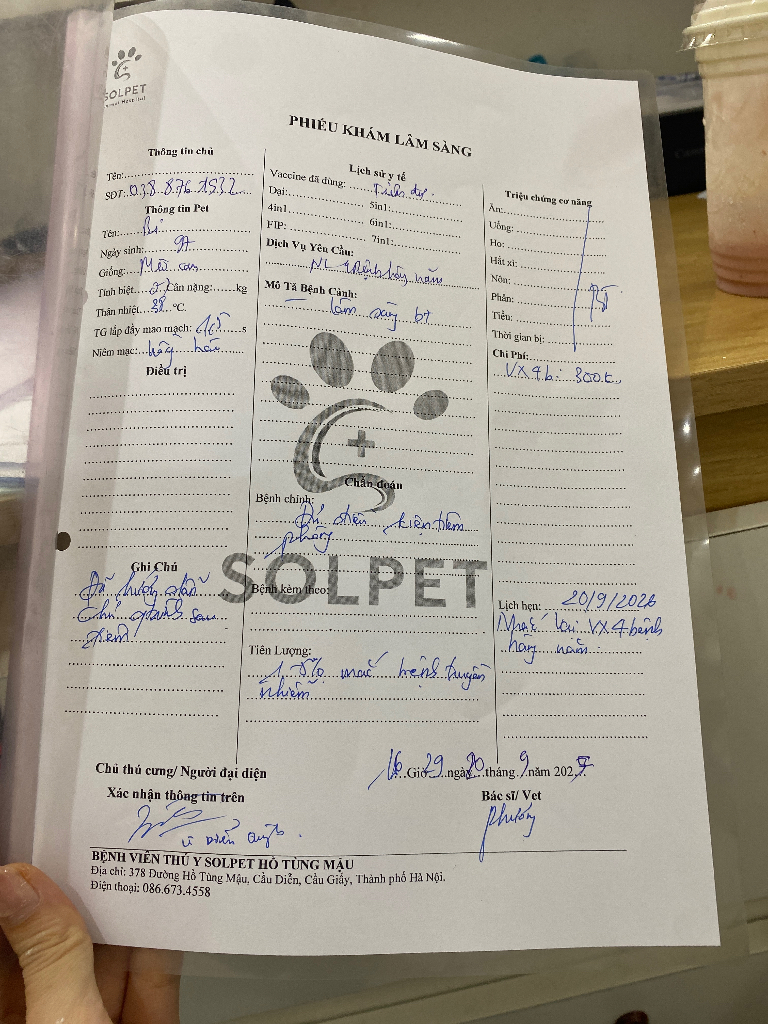 SOLPET
PHIẾU KHÁM LÂM SÀNG
Thông tin chủ
Tên:
SĐT: 038.876.1532
Thông tin Pet
Tên:
Ngày sinh:
Giống: Mèo
Tính biệt Cân nặng: kg
Thân nhiệt 38 °C.
TG lấp đầy mao mạch: s
Niêm mạc: hồng hào
Điều trị
Ghi Chú
Đã hướng dẫn
chủ sau
tiêm
Lịch sử y tế
Vaccine đã dùng: Tiêm đủ
Dại: 5in1:
4in1 6in1:
FIP: 7in1:
Dịch Vụ Yêu Cầu:
NL 4 bệnh hàng năm
Mô Tả Bệnh Cảnh:
lâm sàng bt
Chẩn đoán
Bệnh chính:
Đủ điều kiện tiêm
phòng
SOLPET
Bệnh kèm theo:
Tiên Lượng:
mắc bệnh truyền
nhiễm
Triệu chứng cơ năng
Ăn:
Uống:
Ho:
Hắt xì:
Nôn:
Phân:
Tiểu:
Thời gian bị:
Chi Phí:
VX 4b: 300k
Lịch hẹn: 20/9/2026
Nhắc lại VX 4 bệnh
hàng năm
16 Giờ 29 ngày 20 tháng 9 năm 202
Chủ thú cưng/ Người đại diện
Xác nhận thông tin trên
Bác sĩ/ Vet
Phương
BỆNH VIỆN THÚ Y SOLPET HỒ TÙNG MẬU
Địa chỉ: 378 Đường Hồ Tùng Mậu, Cầu Diễn, Cầu Giấy, Thành phố Hà Nội.
Điện thoại: 086.673.4558